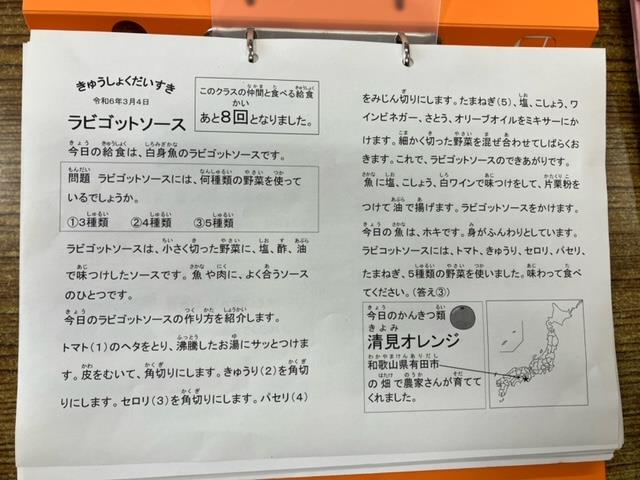 きゅうしょくだいすき
令和6年3月4日
ラビゴットソース
このクラスの仲間と食べる給食
あと8回となりました。
今日の給食は、白身魚のラビゴットソースです。
問題 ラビゴットソースには、何種類の野菜を使って
いるでしょうか。
①3種類 ②4種類 ③5種類
ラビゴットソースは、小さく切った野菜に、塩、酢、油
で味つけしたソースです。魚や肉に、よく合うソース
のひとつです。
今日のラビゴットソースの作り方を紹介します。
トマト(1)のヘタをとり、沸騰したお湯にサッとつけま
す。皮をむいて、角切りにします。きゅうり(2)を角切
りにします。セロリ(3)を角切りにします。パセリ(4)
をみじん切りにします。たまねぎ(5)、塩、こしょう、ワ
インビネガー、さとう、オリーブオイルをミキサーにか
けます。細かく切った野菜を混ぜ合わせてしばらくお
きます。これで、ラビゴットソースのできあがりです。
魚に塩、こしょう、白ワインで味つけをして、片栗粉を
つけて油で揚げます。ラビゴットソースをかけます。
今日の魚は、ホキです。身がふんわりとしています。
ラビゴットソースには、トマト、きゅうり、セロリ、パセリ、
たまねぎ、5種類の野菜を使いました。味わって食べ
てください。(答え③)
今日のかんきつ類
清見オレンジ
和歌山県有田市
の畑で農家さんが育てて
くれました。